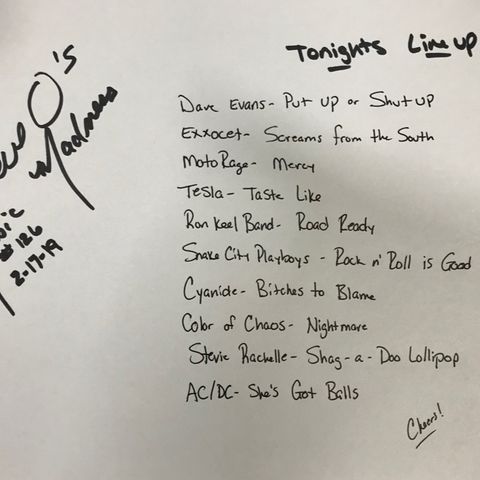 Tonights Line up
O's
Madness
#126
2-17-19
Dave Evans- Put up or Shut up
Exxocet- Screams from the South
MotoRage- Mercy
Tesla- Taste Like
Ron Keel Band- Road Ready
Snake City Playboys - Rock n' Roll is Good
Cyanide- Bitches to Blame
Color of Chaos- Nightmare
Stevie Rachelle- Shag-a-Doo Lollipop
AC/DC- She's Got Balls
Cheers!